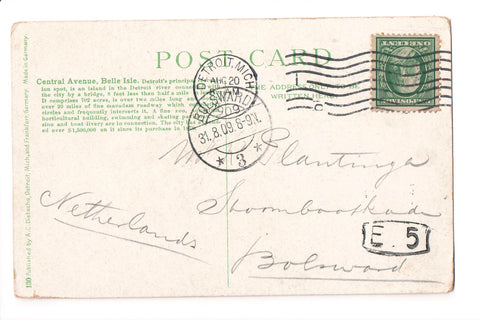 POST CARD
Central Avenue, Belle Isle. Detroit's principal
ion spot, is an island in the Detroit river connected
the city by a bridge, 8 feet less than half a mile
It comprises 702 acres, is over two miles long and
over 20 miles of fine macadam roadway which
circles and frequently intersects it. A fine zoo,
horticultural building, swimming and skating
sine and boat livery are in connection. The city has
ed over $1,500,000 on it since its purchase in
THE ADDRESS
WRITTEN
DETROIT, MICH
AUG 20
BOLSWARD
31.8.09.6-9V.
* 3 *
M Plantinga
Stoombootkade
Bolsward
Netherlands
E. 5
130 Published by A.C. Dietsche, Detroit, Mich, and Frankfurt, Germany Made in Germany